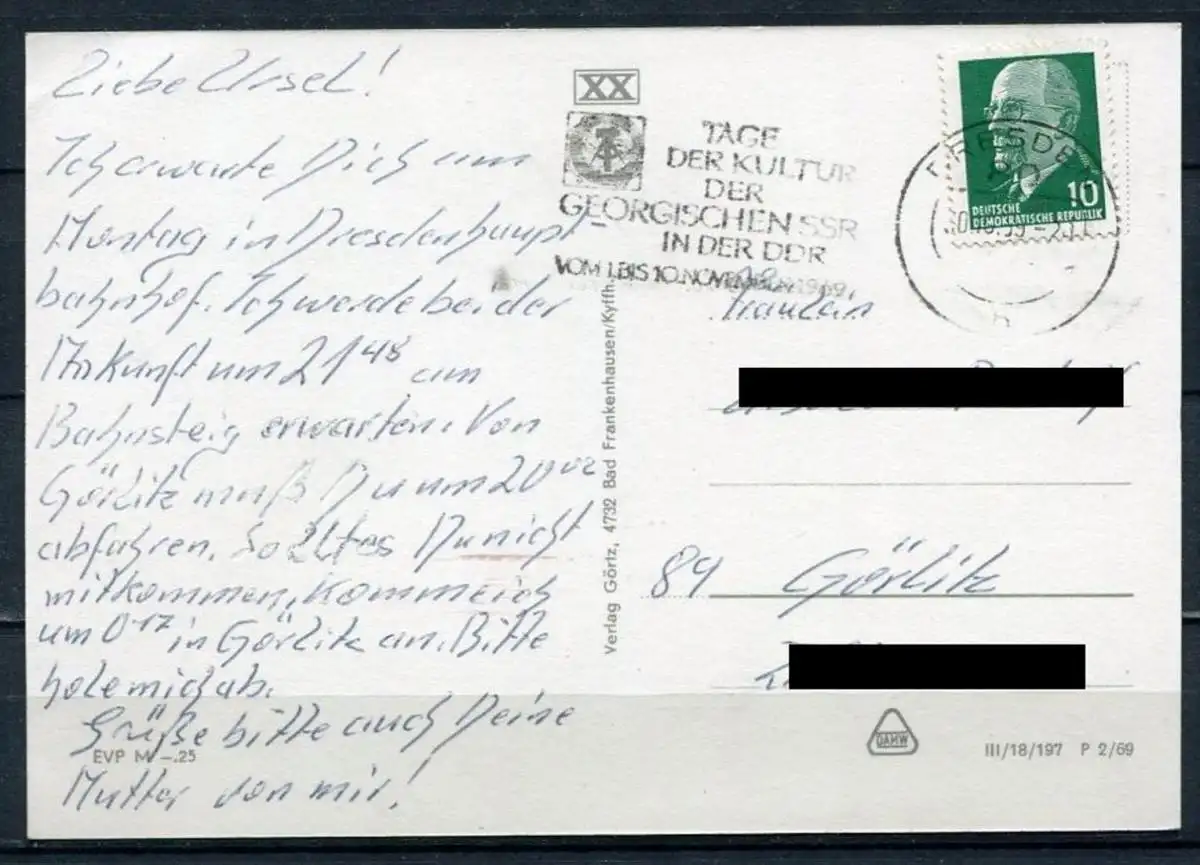 Liebe Ursel!
Ich erwarte Dich am
Montag in Dresdenhaupt-
bahnhof. Ich werde bei der
Ankunft um 21 48 am
Bahnsteig erwarten. Von
Görlitz mußt Du um 20 02
abfahren. Solltest Du nicht
mitkommen, komme ich
um 0 17 in Görlitz an. Bitte
hole mich ab.
Grüße bitte auch Deine
Mutter von mir!
EVP M -.25
Verlag Görtz, 4732 Bad Frankenhausen/Kyffh.
XX
TAGE
DER KULTUR
DER
GEORGISCHEN SSR
IN DER DDR
VOM 1. BIS 10. NOVEMBER 1969
DRESDEN
10
DEUTSCHE
DEMOKRATISCHE REPUBLIK
Fräulein
89 Görlitz
DAMW
III/18/197 P 2/69